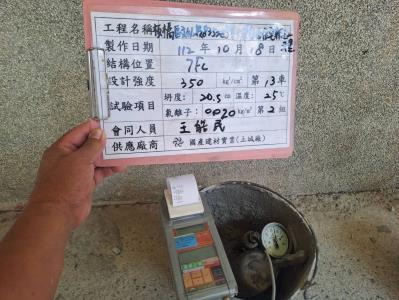 工程名稱
製作日期 112 年 10 月 18 日
結構位置 7FC
設計強度 350 kg/cm² 第 13 車
試驗項目 坍度: 20.5 cm 溫度: 25 ℃
氯離子: 0.020 kg/m³ 第 2 組
會同人員 王皓民
供應廠商 國產建材實業(土城廠)